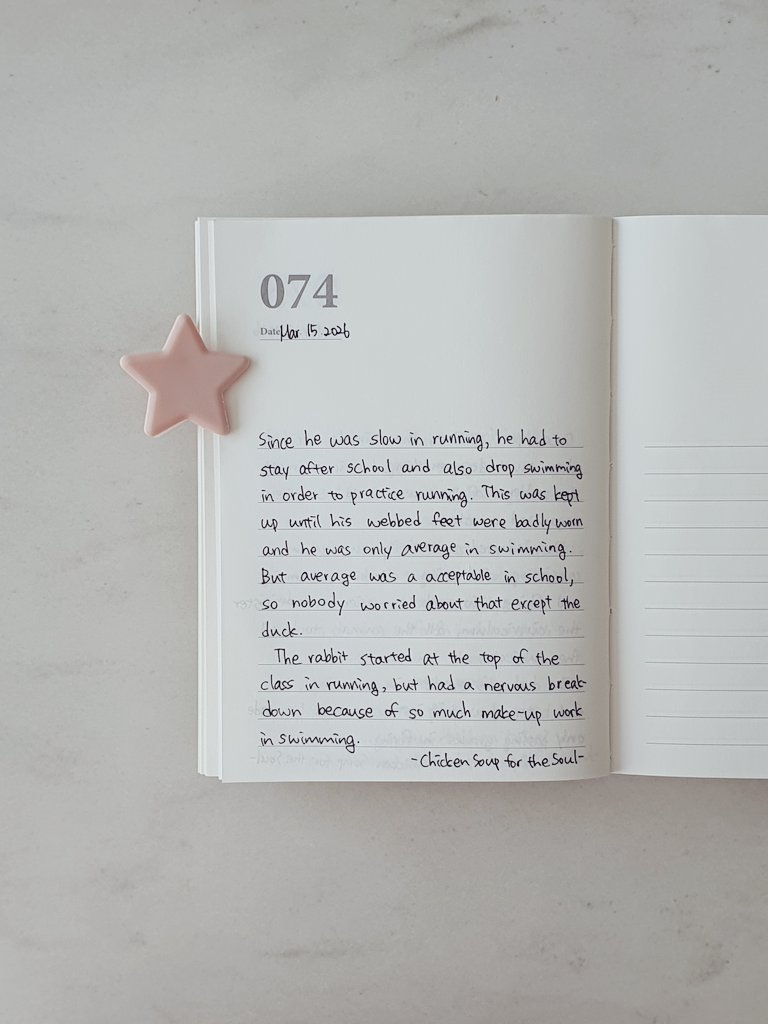 074
Date Mar 15 2026
Since he was slow in running, he had to
stay after school and also drop swimming
in order to practice running. This was kept
up until his webbed feet were badly worn
and he was only average in swimming.
But average was a acceptable in school,
so nobody worried about that except the
duck.
The rabbit started at the top of the
class in running, but had a nervous break-
down because of so much make-up work
in swimming.
-Chicken Soup for the Soul-